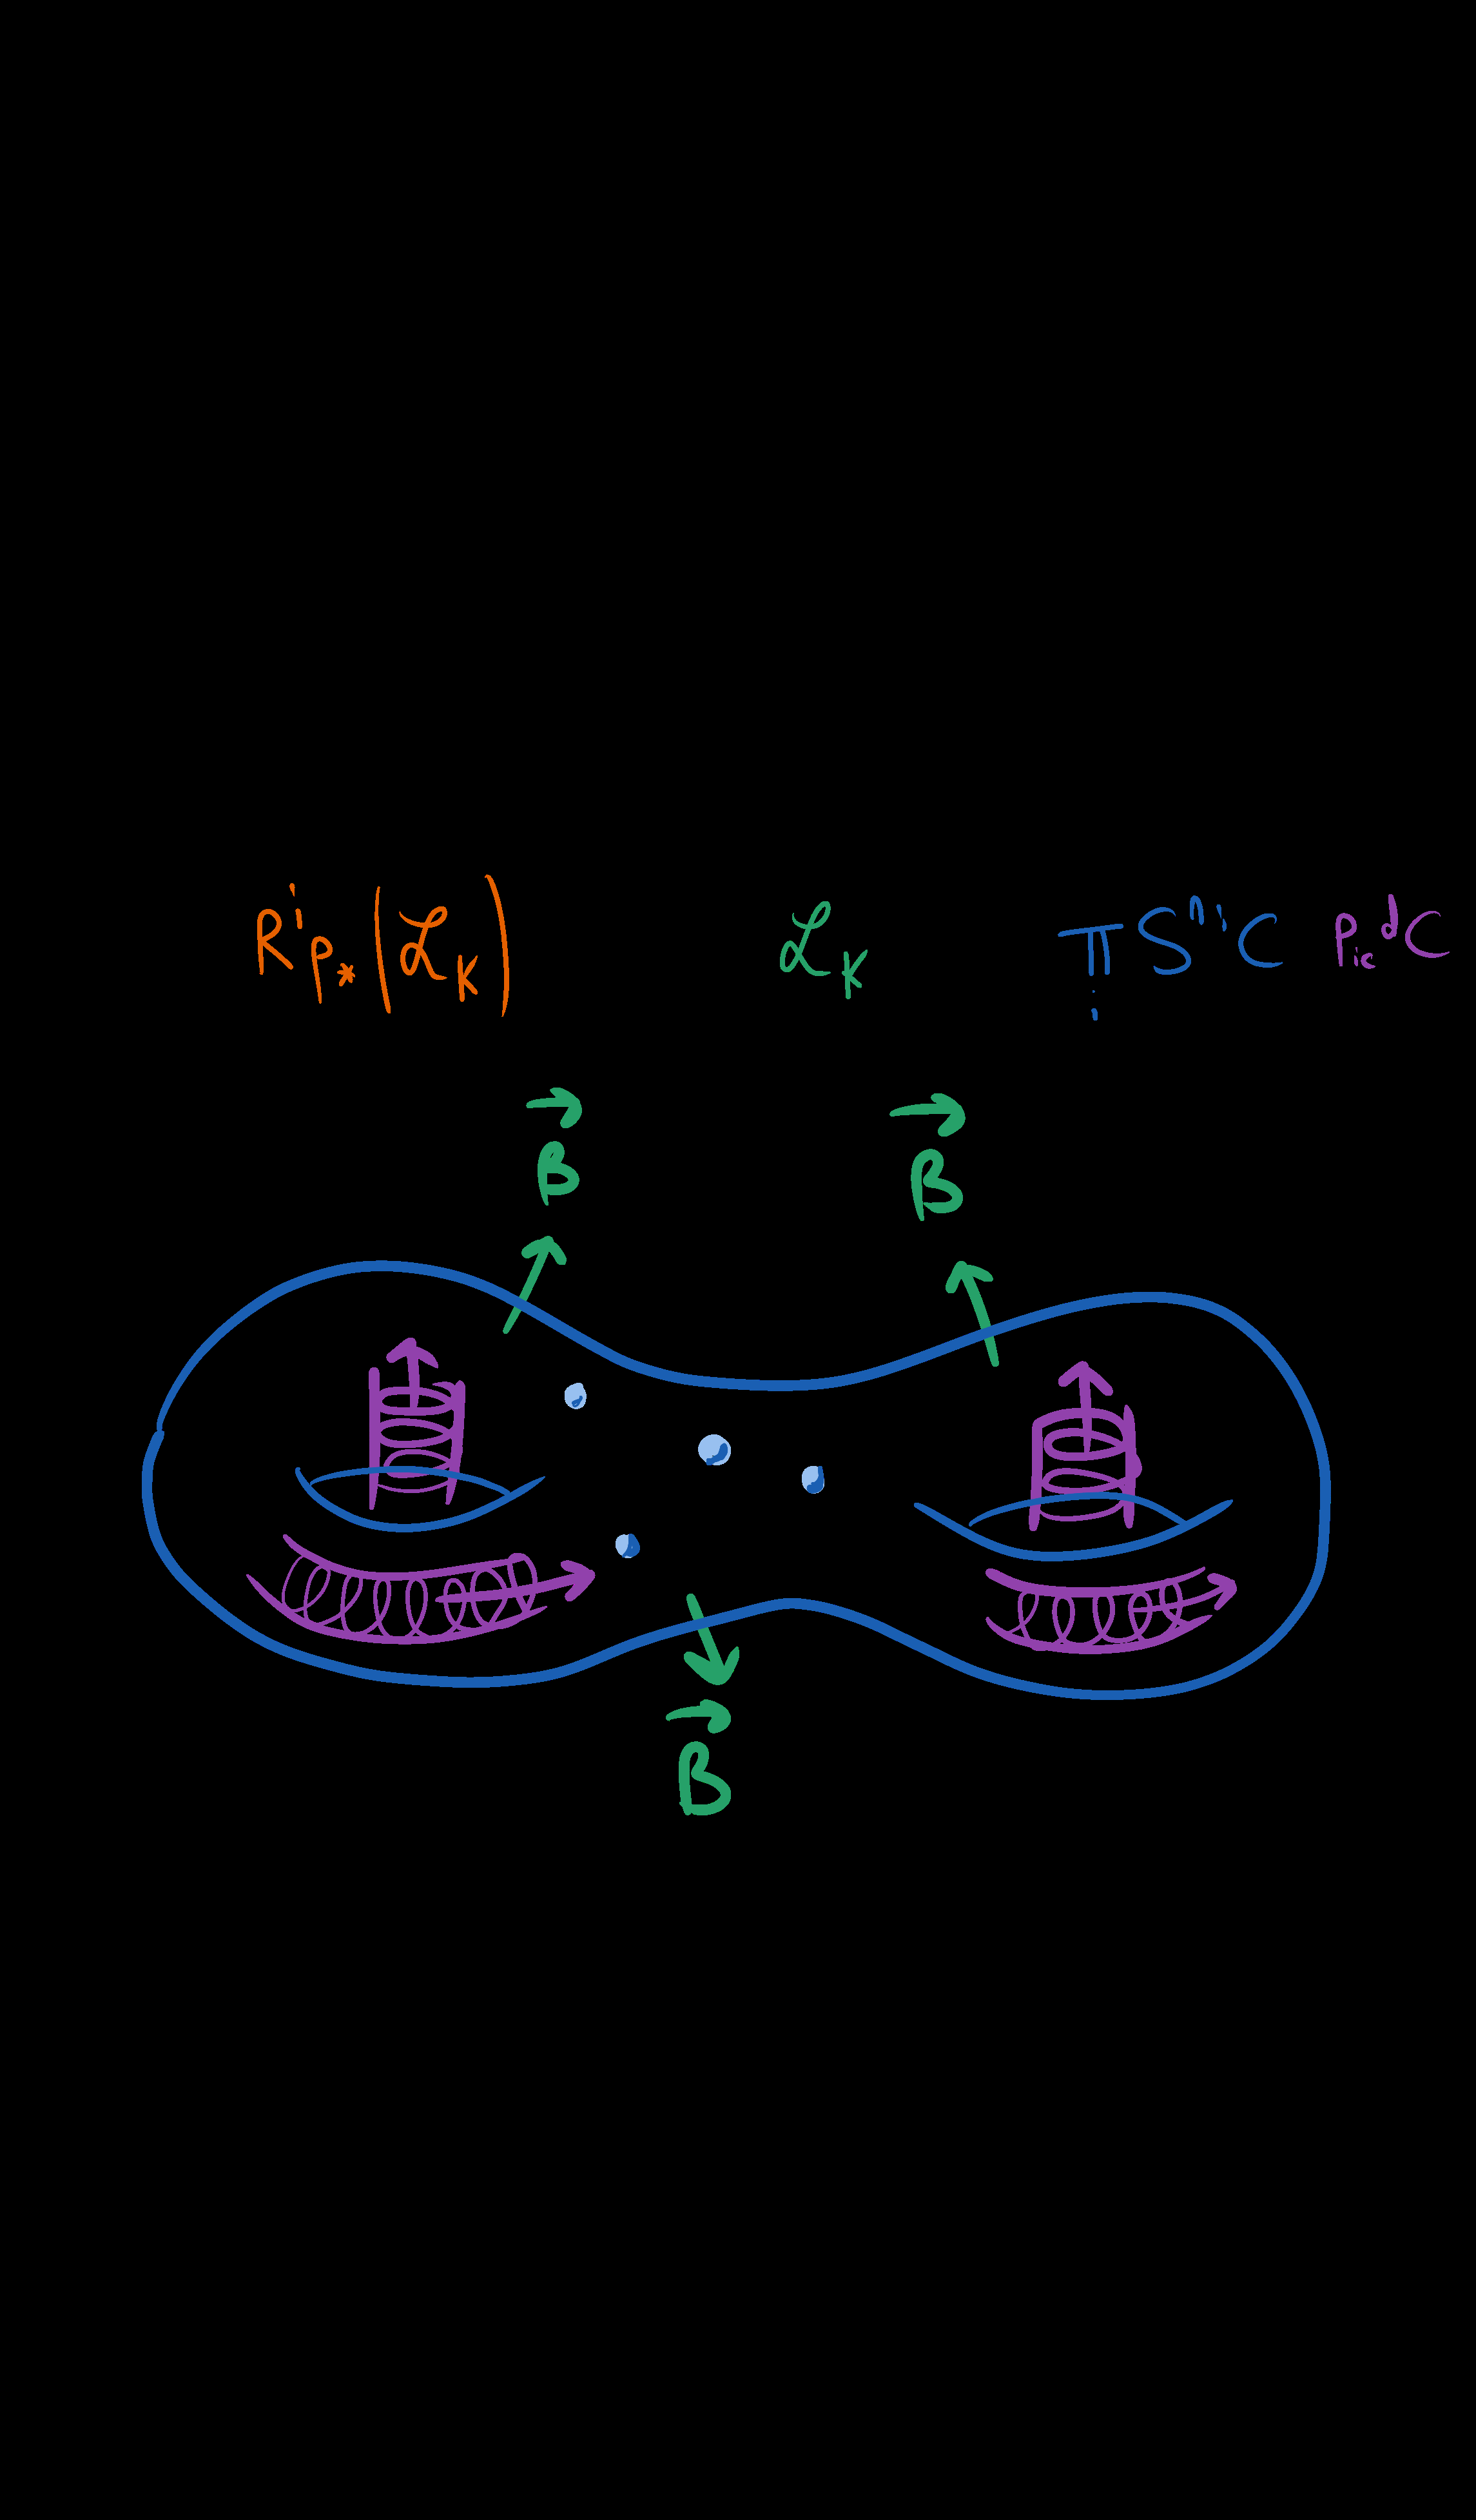 Rⁱp_*(ℒ_K) ℒ_K ∏_i SⁿⁱC Picᵈ C
B⃗ B⃗
B⃗